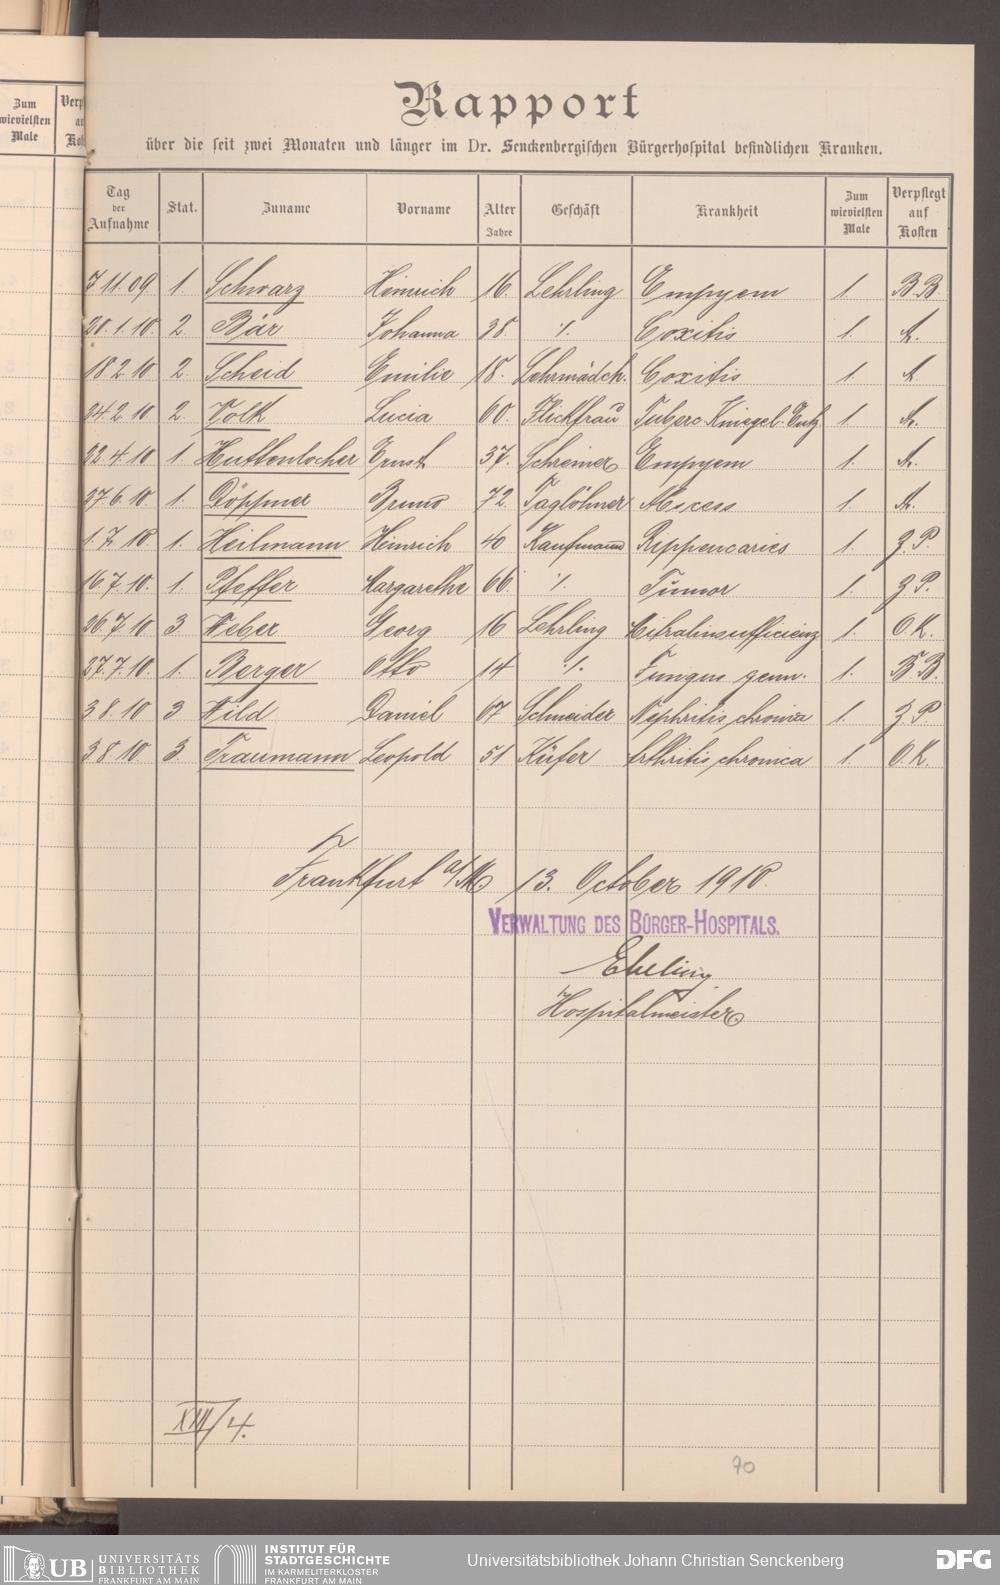 Zum wievielsten Male
Rapport
über die seit zwei Monaten und länger im Dr. Senckenbergischen Bürgerhospital befindlichen Kranken.
Tag der Aufnahme Stat. Zuname Vorname Alter Jahre Geschäft Krankheit Zum wievielsten Male Verpflegt auf Kosten
7 11. 09 1. Schwarz Heinrich 16. Lehrling Empyem 1. B. B.
20. 1. 10. 2. Bär Johanna 38. ·/. Coxitis 1. A.
18. 2. 10 2. Scheid Emilie 18. Lehrmädch. Coxitis 1. A.
24. 2. 10 2. Volk Lucia 60. Flickfrau Tuberc. Kniegel. Entz. 1. A.
22. 4. 10 1. Huttenlocher Ernst 37. Schreiner Empyem 1. A.
27. 6. 10. 1. Döppner Bruno 72. Taglöhner Abscess 1. A.
1. 7. 10. 1. Heilmann Heinrich 40 Kaufmann Rippencaries 1. z. P.
16. 7. 10. 1. Pfeffer Margarethe 66. ·/. Tumor 1. z. P.
26. 7. 10 3. Weber Georg 16 Lehrling Mitralinsufficienz 1. O. K.
27. 7. 10. 1. Berger Otto 14 ·/. Fungus genu. 1. B. B.
3 8. 10 3 Wild Daniel 67 Schneider Nephritis chronica 1. z. P
3 8 10 3. Traumann Leopold 51 Küfer Arthritis chronica 1 O. K.
Frankfurt a/M 13. October 1910.
VERWALTUNG DES BÜRGER-HOSPITALS.
Ebeling
Hospitalmeister
XIII/4.
70
UB UNIVERSITÄTS
BIBLIOTHEK
FRANKFURT AM MAIN
INSTITUT FÜR
STADTGESCHICHTE
IM KARMELITERKLOSTER
FRANKFURT AM MAIN
Universitätsbibliothek Johann Christian Senckenberg
DFG